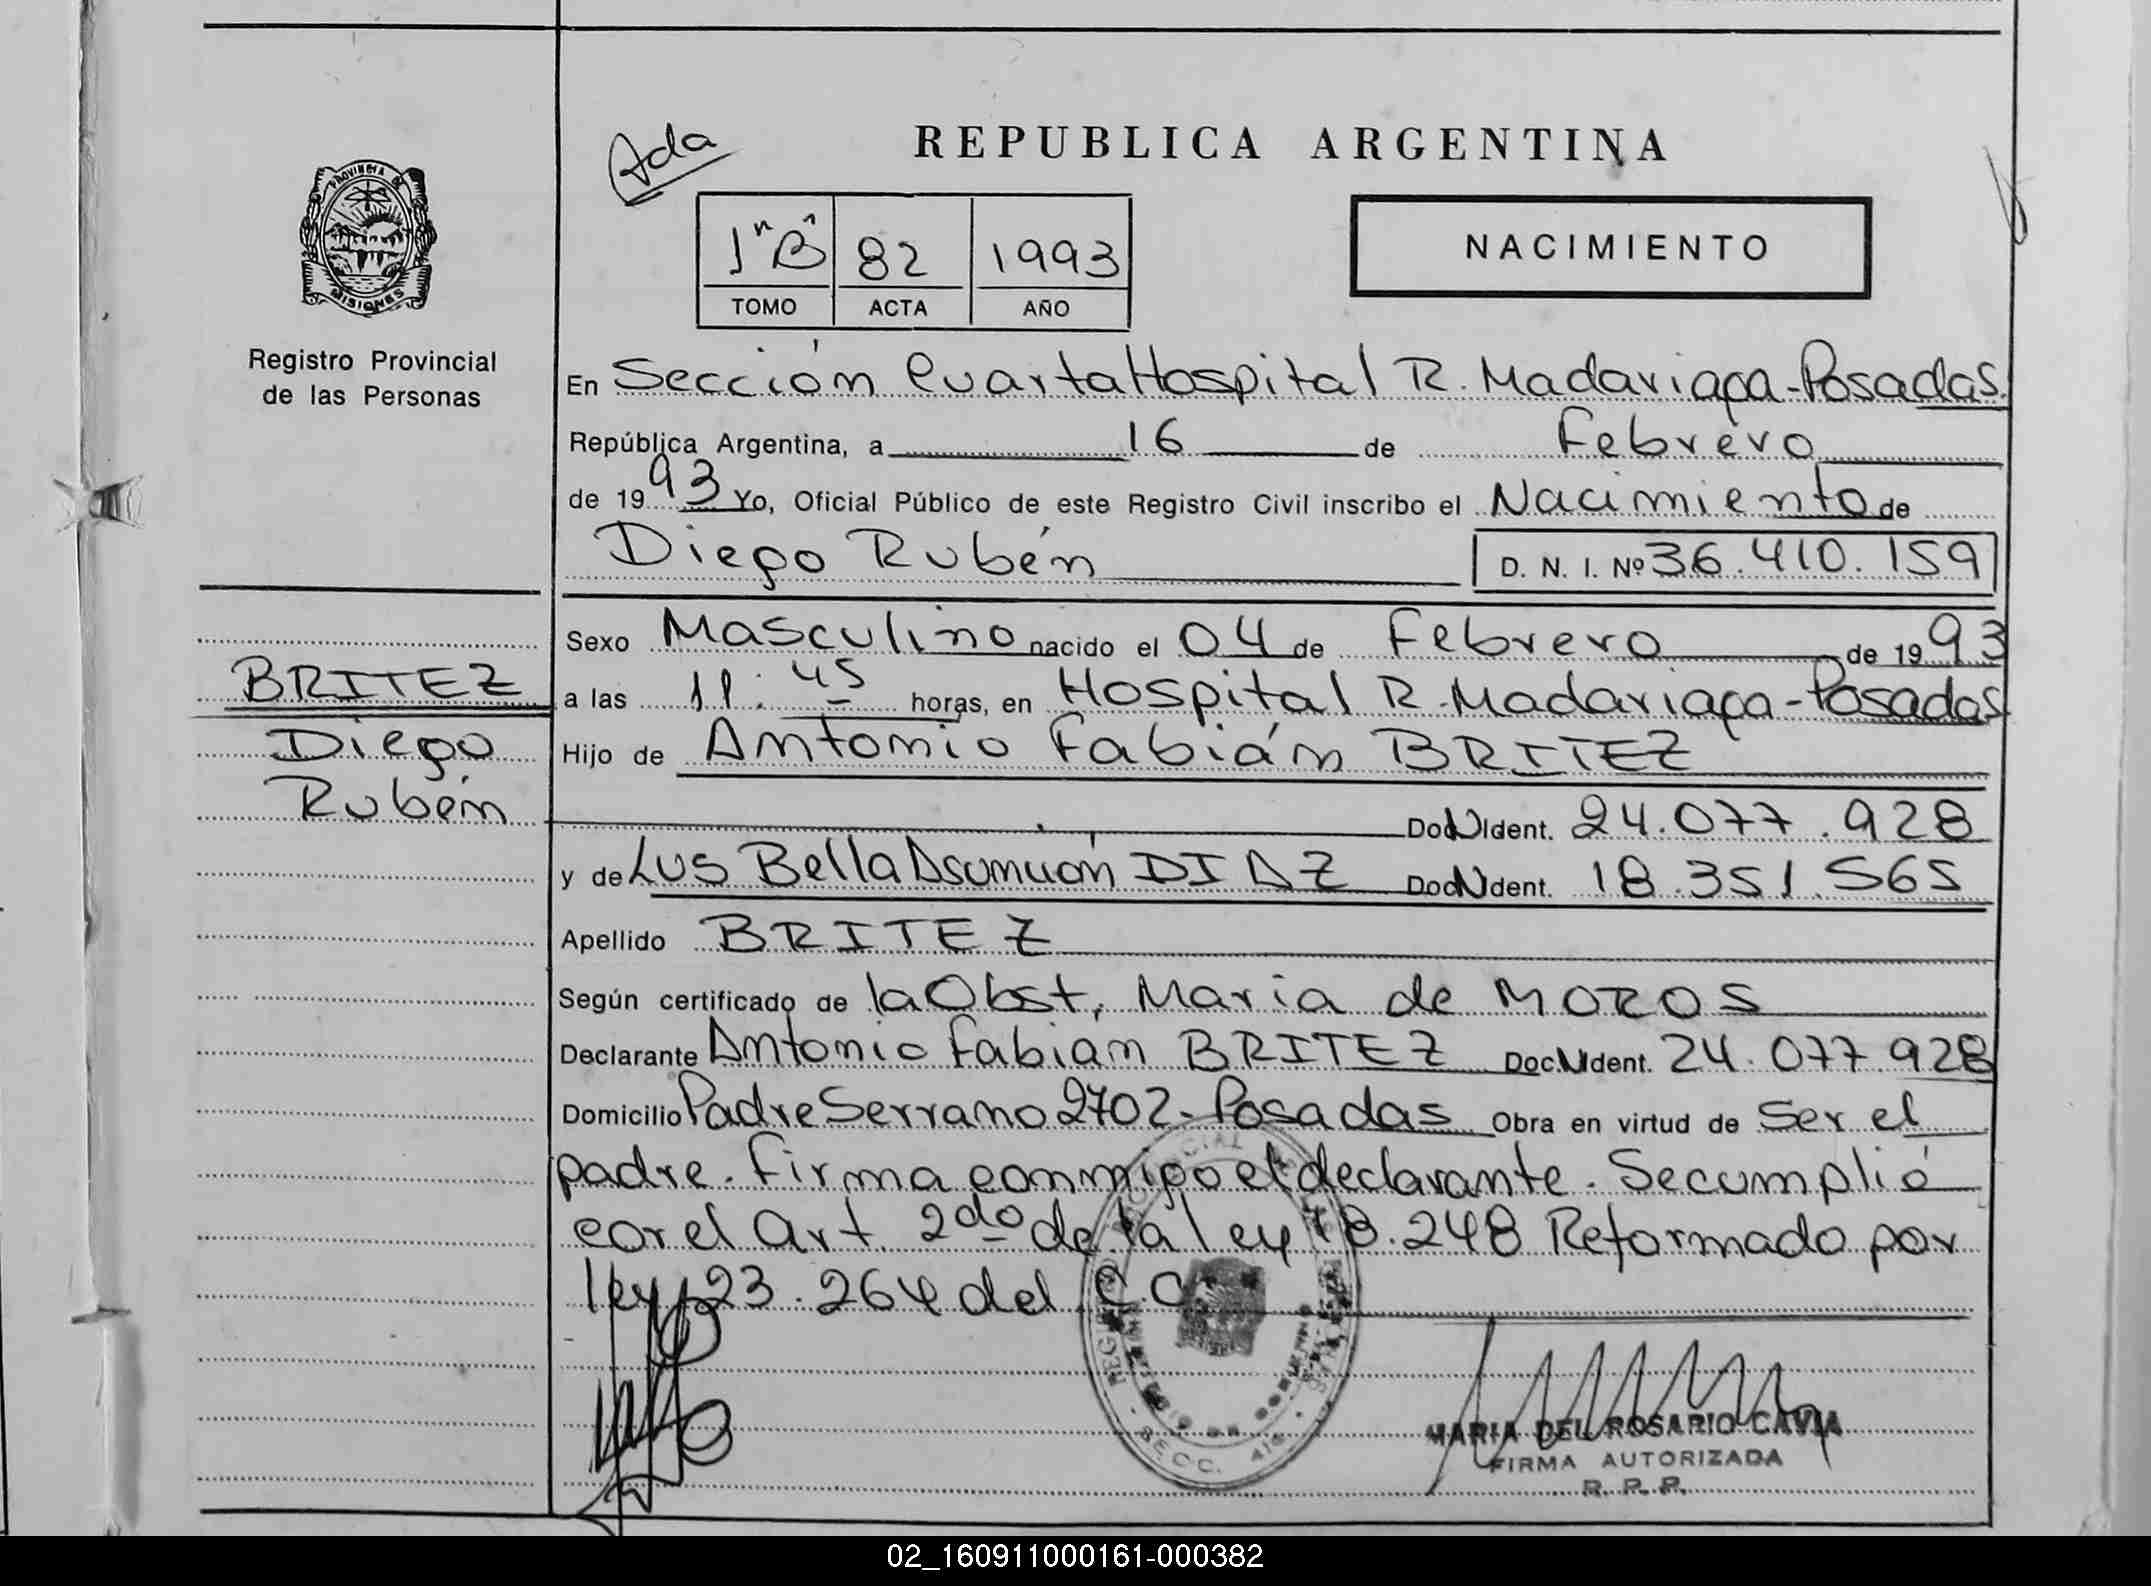 REPUBLICA ARGENTINA
Ada
PROVINCIA DE
MISIONES
Registro Provincial
de las Personas
1" B" 82 1993
TOMO ACTA AÑO
NACIMIENTO
En Sección Cuarta Hospital R. Madariaga - Posadas.
República Argentina, a 16 de Febrero
de 1993 Yo, Oficial Público de este Registro Civil inscribo el Nacimiento de
Diego Rubén D. N. I. Nº 36.410.159
Sexo Masculino nacido el 04 de Febrero de 1993
a las 11:45 horas, en Hospital R. Madariaga - Posadas
Hijo de Antonio Fabián BRITEZ
Doc N Ident. 24.077.928
y de Lus Bella Asunción DIAZ Doc N Ident. 18.351.565
Apellido BRITEZ
BRITEZ
Diego
Rubén
Según certificado de la Obst, Maria de MOROS
Declarante Antonio Fabian BRITEZ Doc. N Ident. 24.077.928
Domicilio Padre Serrano 2702 - Posadas Obra en virtud de ser el
padre. Firma conmigo el declarante. Se cumplió
con el Art. 2do de la ley 18.248 Reformado por
ley 23.264 del C.C.
SECC. 4ta.
MARIA DEL ROSARIO CAVIA
FIRMA AUTORIZADA
R. P. P.
02_160911000161-000382